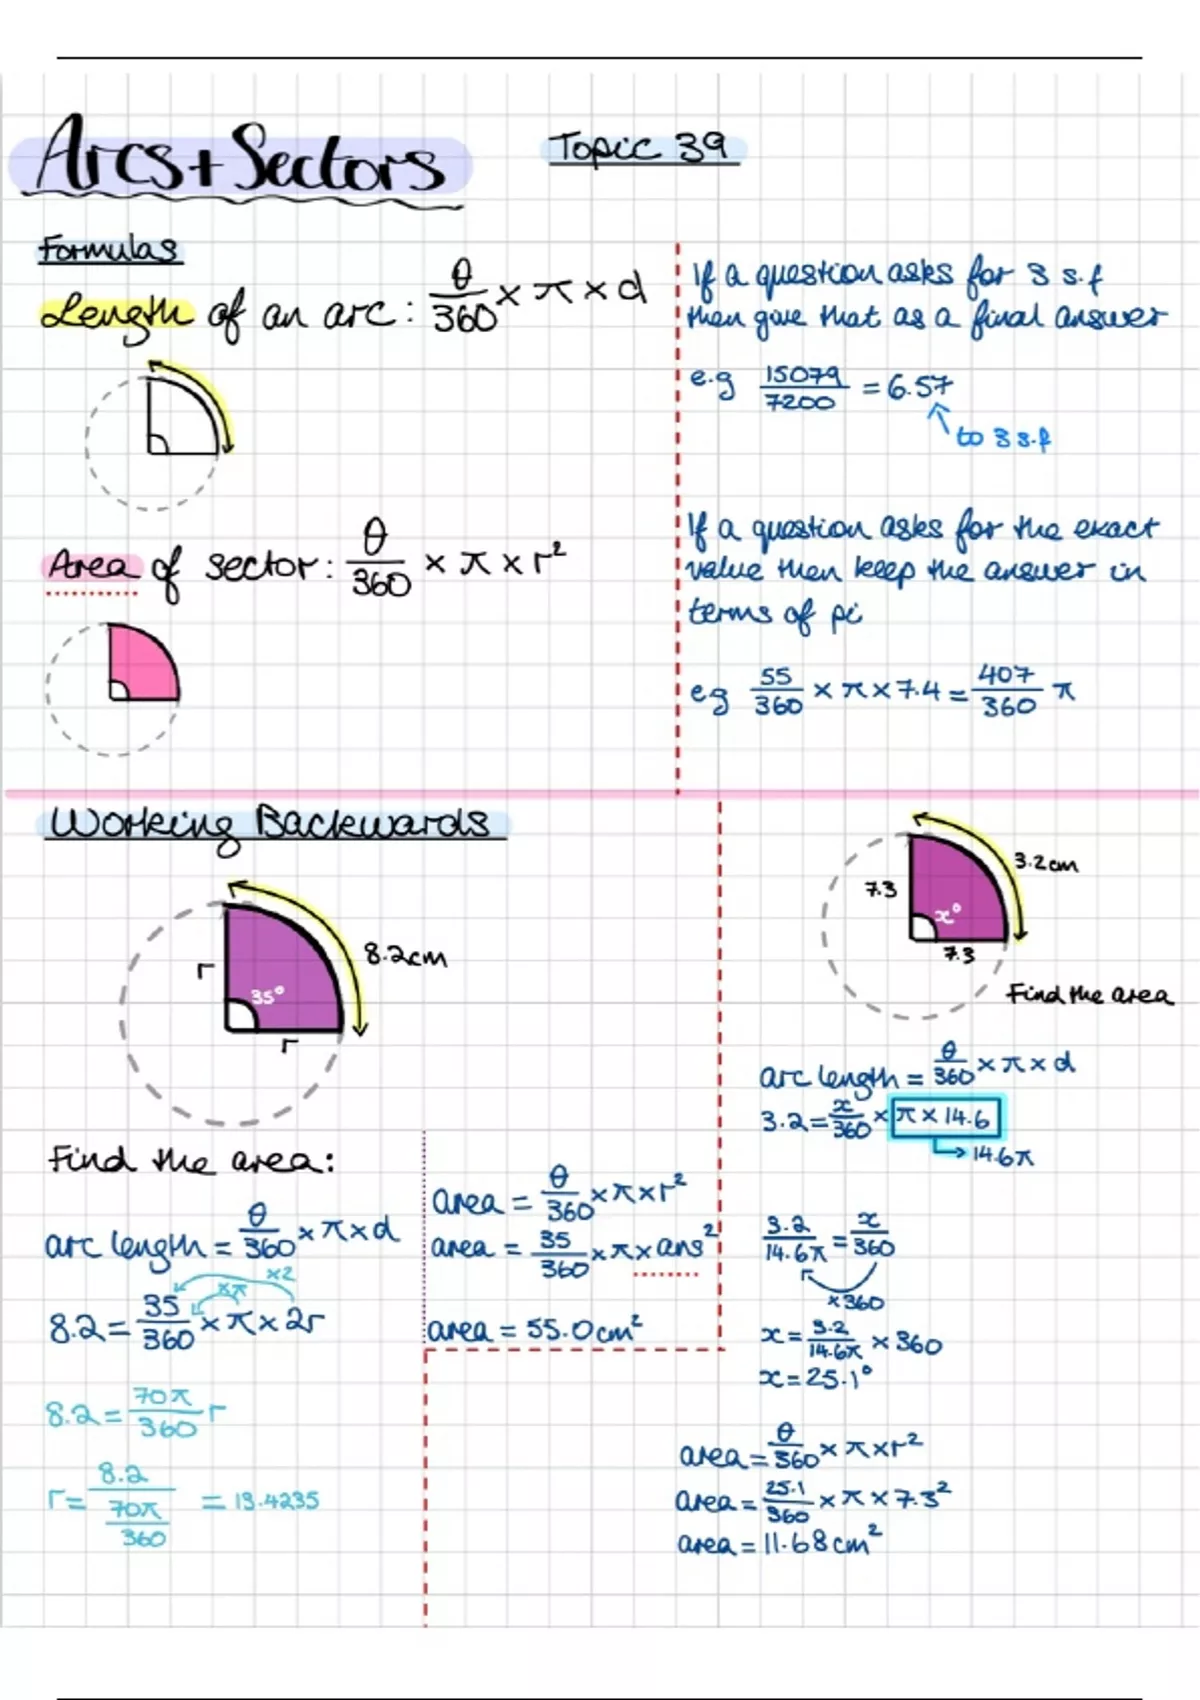 Arcs + Sectors
Topic 39
Formulas
Length of an arc: θ/360 × π × d
Area of sector: θ/360 × π × r²
If a question asks for 3 s.f
then give that as a final answer
e.g 15079/7200 = 6.57
to 3 s.f
If a question asks for the exact
value then keep the answer in
terms of pi
eg 55/360 × π × 7.4 = 407/360 π
Working Backwards
r
35°
8.2cm
r
Find the area:
arc length = θ/360 × π × d
×2
×π
8.2 = 35/360 × π × 2r
8.2 = 70π/360 r
r = 8.2/(70π/360) = 13.4235
area = θ/360 × π × r²
area = 35/360 × π × ans²
area = 55.0cm²
7.3
x°
3.2cm
7.3
Find the area
arc length = θ/360 × π × d
3.2 = x/360 × π × 14.6
14.6π
3.2/14.6π = x/360
×360
x = 3.2/14.6π × 360
x = 25.1°
area = θ/360 × π × r²
area = 25.1/360 × π × 7.3²
area = 11.68cm²